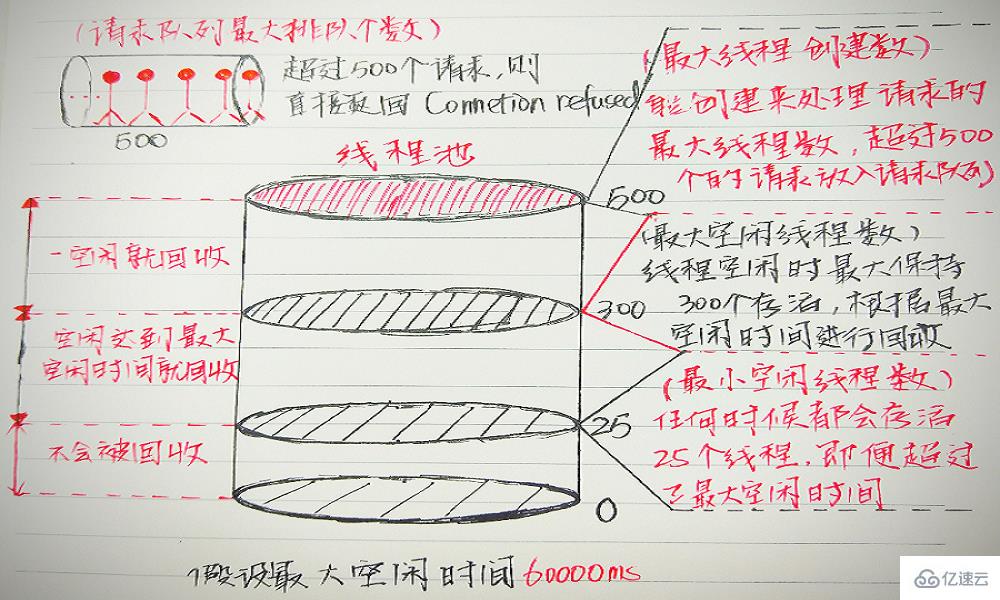 (请求队列最大排队个数)
超过500个请求,则
直接返回 Connetion refused
500
线程池
(最大线程创建数)
能创建来处理请求的
最大线程数,超过500
个的请求放入请求队列
500
一空闲就回收
(最大空闲线程数)
线程空闲时最大保持
300个存活,根据最大
空闲时间进行回收
300
空闲达到最大
空闲时间就回收
(最小空闲线程数)
任何时候都会存活
25个线程,即便超过
了最大空闲时间
25
不会被回收
0
假设最大空闲时间60000ms
亿速云